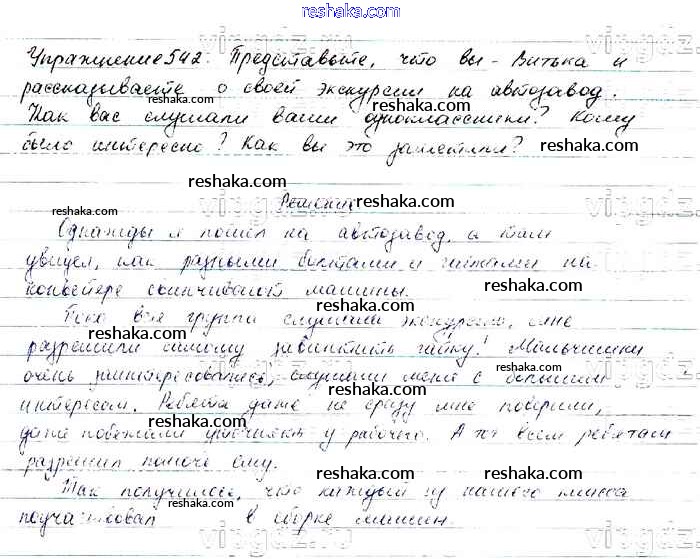 reshaka.com
Упражнение 542. Представьте, что вы - Витька и
рассказываете о своей экскурсии на автозавод.
reshaka.com
Как вас слушали ваши одноклассники? Кому
было интересно? Как вы это заметили? reshaka.com
reshaka.com
Решение
reshaka.com
Однажды я пошел на автозавод, а там
увидел, как разными болтами и гайками на
конвейере свинчивают машины. reshaka.com
Пока вся группа слушала экскурсию, мне
reshaka.com
разрешили самому завинтить гайку! Мальчишки
очень заинтересовались, слушали меня с большим
reshaka.com
интересом. Ребята даже не сразу мне поверили,
даже побежали уточнять у рабочего. А тот всем ребятам
разрешил помочь ему. reshaka.com
reshaka.com
Так получилось, что каждый из нашего класса
поучаствовал в сборке машин.
reshaka.com